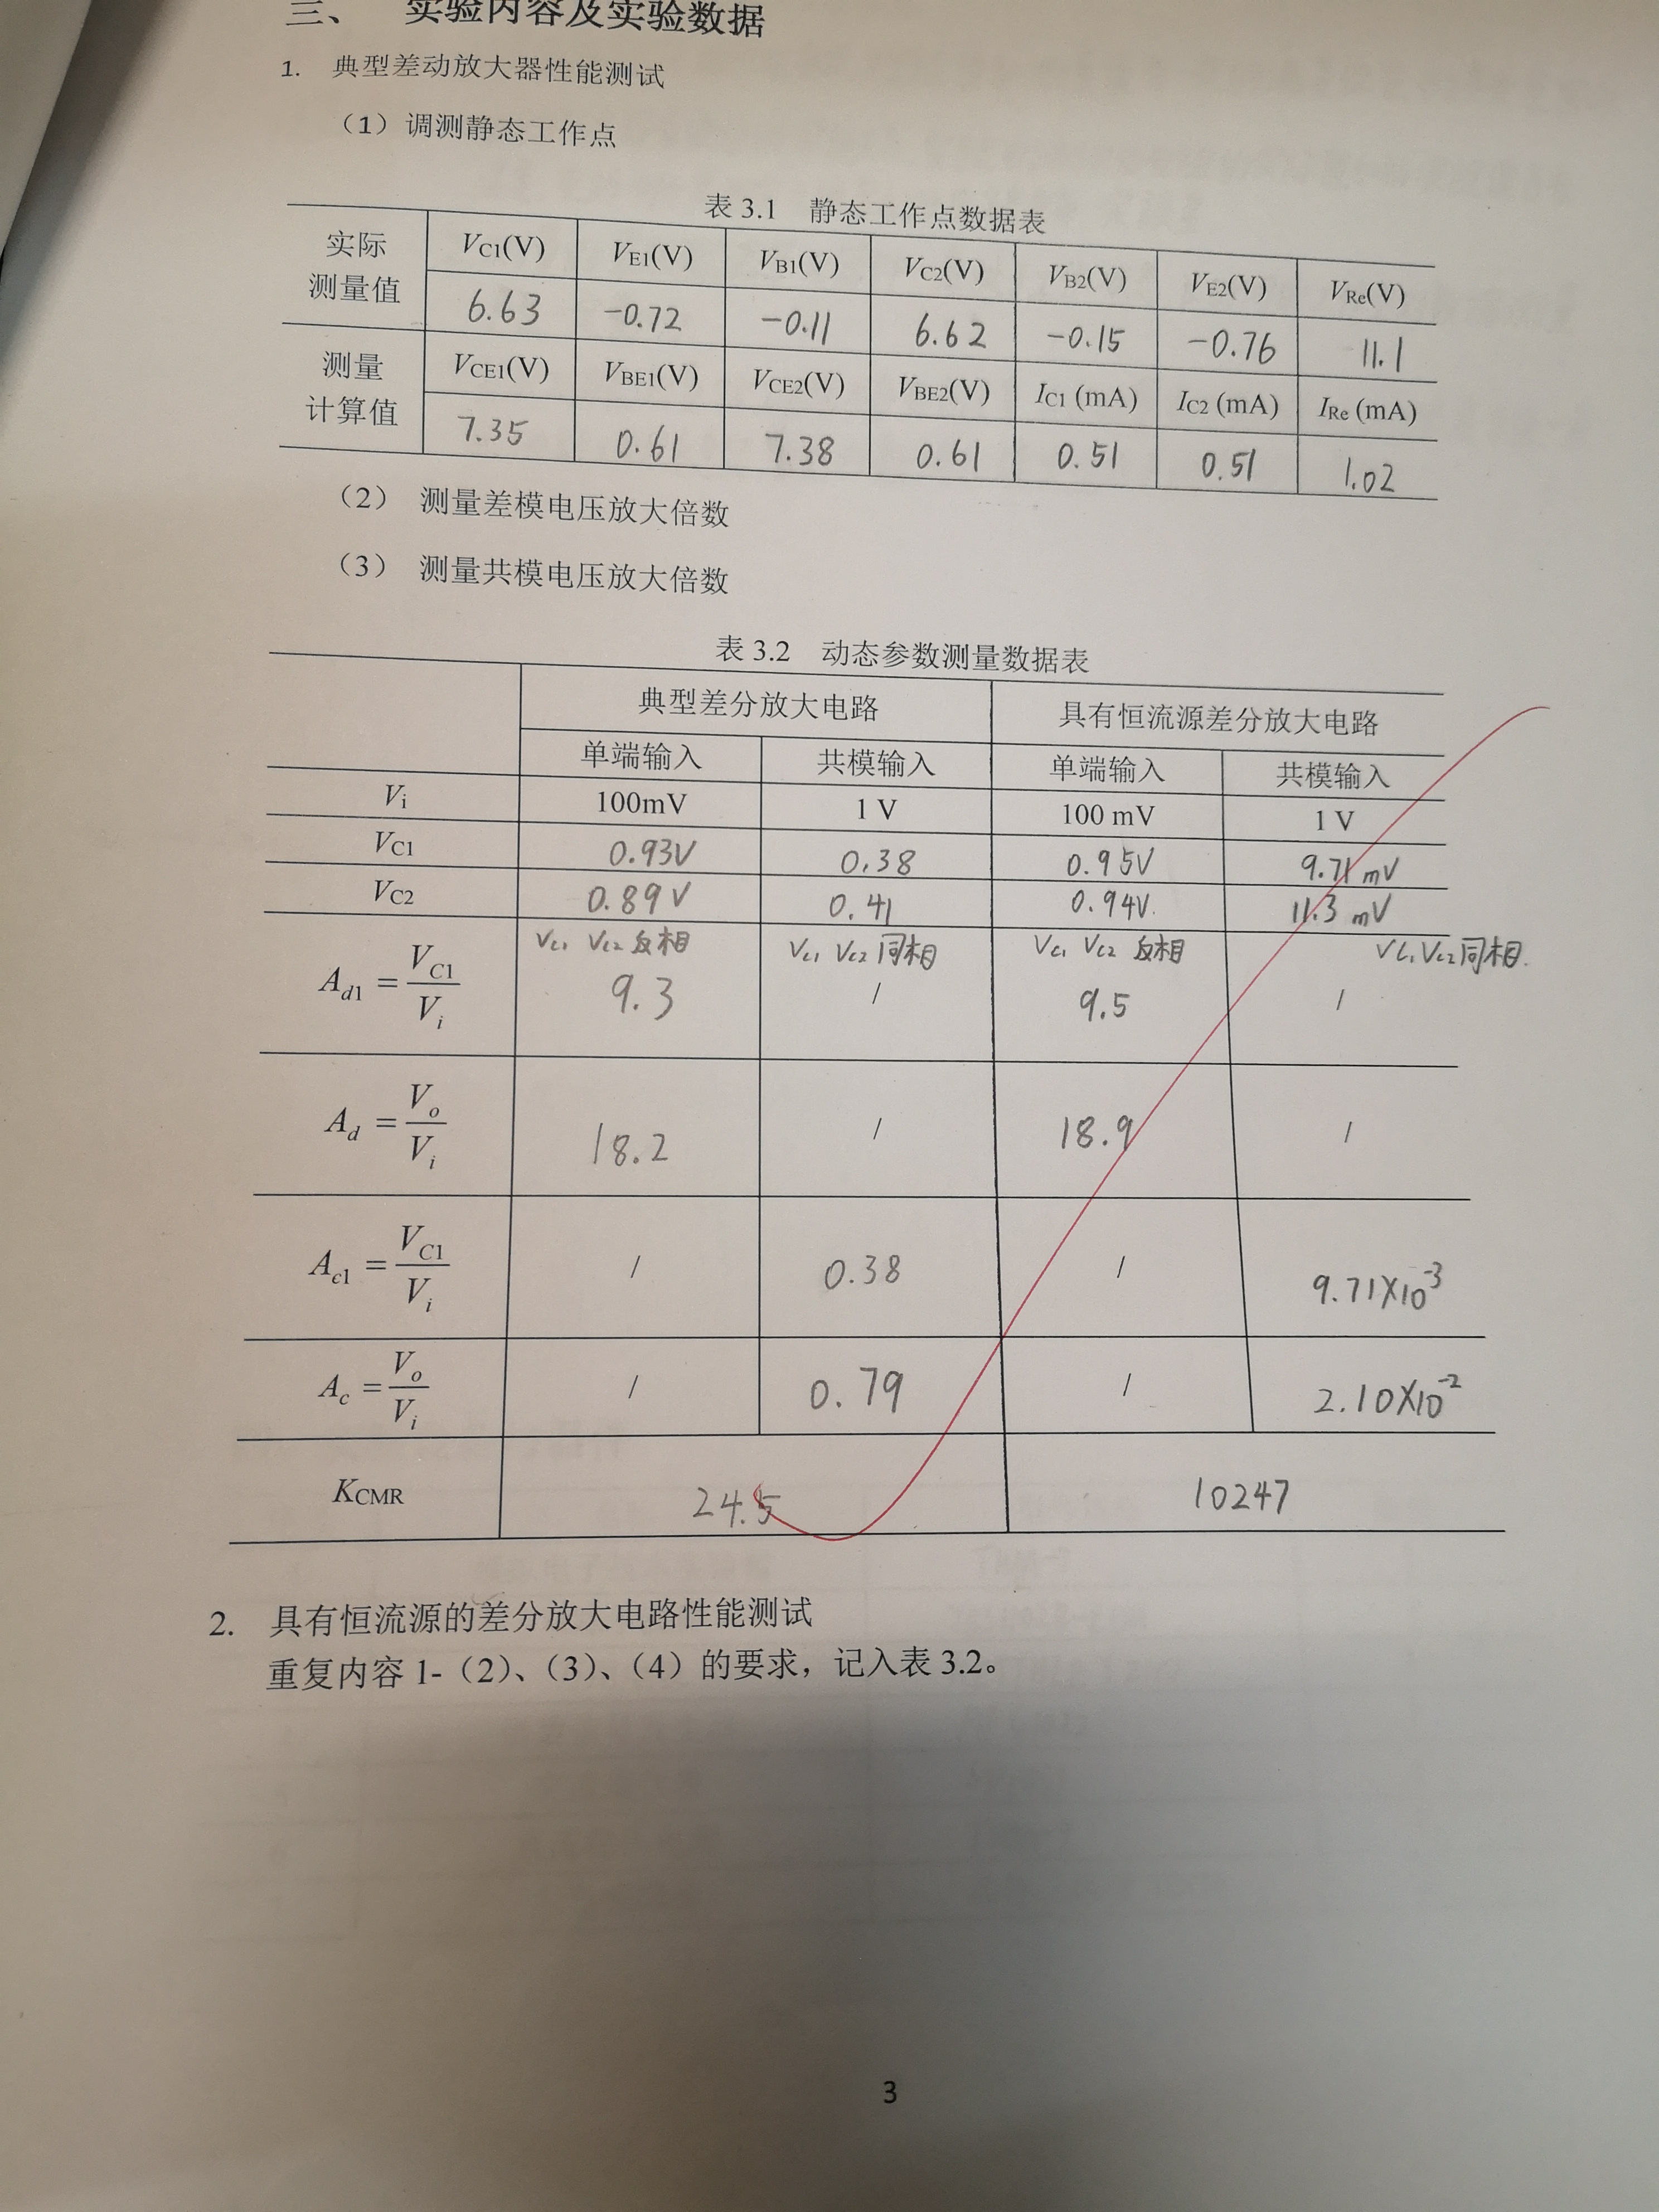 三、 实验内容及实验数据
1. 典型差动放大器性能测试
（1）调测静态工作点
表 3.1 静态工作点数据表
实际测量值 VC1(V) VE1(V) VB1(V) VC2(V) VB2(V) VE2(V) VRe(V)
6.63 -0.72 -0.11 6.62 -0.15 -0.76 11.1
测量计算值 VCE1(V) VBE1(V) VCE2(V) VBE2(V) IC1 (mA) IC2 (mA) IRe (mA)
7.35 0.61 7.38 0.61 0.51 0.51 1.02
（2） 测量差模电压放大倍数
（3） 测量共模电压放大倍数
表 3.2 动态参数测量数据表
典型差分放大电路 具有恒流源差分放大电路
单端输入 共模输入 单端输入 共模输入
Vi 100mV 1 V 100 mV 1 V
VC1 0.93V 0.38 0.95V 9.71 mV
VC2 0.89V 0.41 0.94V. 11.3 mV
VC1 VC2 反相 VC1 VC2 同相 VC1 VC2 反相 VC1 VC2 同相.
Ad1 = VC1/Vi 9.3 / 9.5 /
Ad = Vo/Vi 18.2 / 18.9 /
Ac1 = VC1/Vi / 0.38 / 9.71×10^-3
Ac = Vo/Vi / 0.79 / 2.10×10^-2
KCMR 24.5 10247
2. 具有恒流源的差分放大电路性能测试
重复内容 1-（2）、（3）、（4）的要求，记入表 3.2。
3